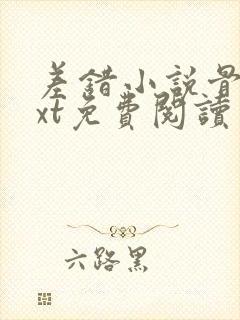 差錯小説最
xt免費閱讀
六路黑